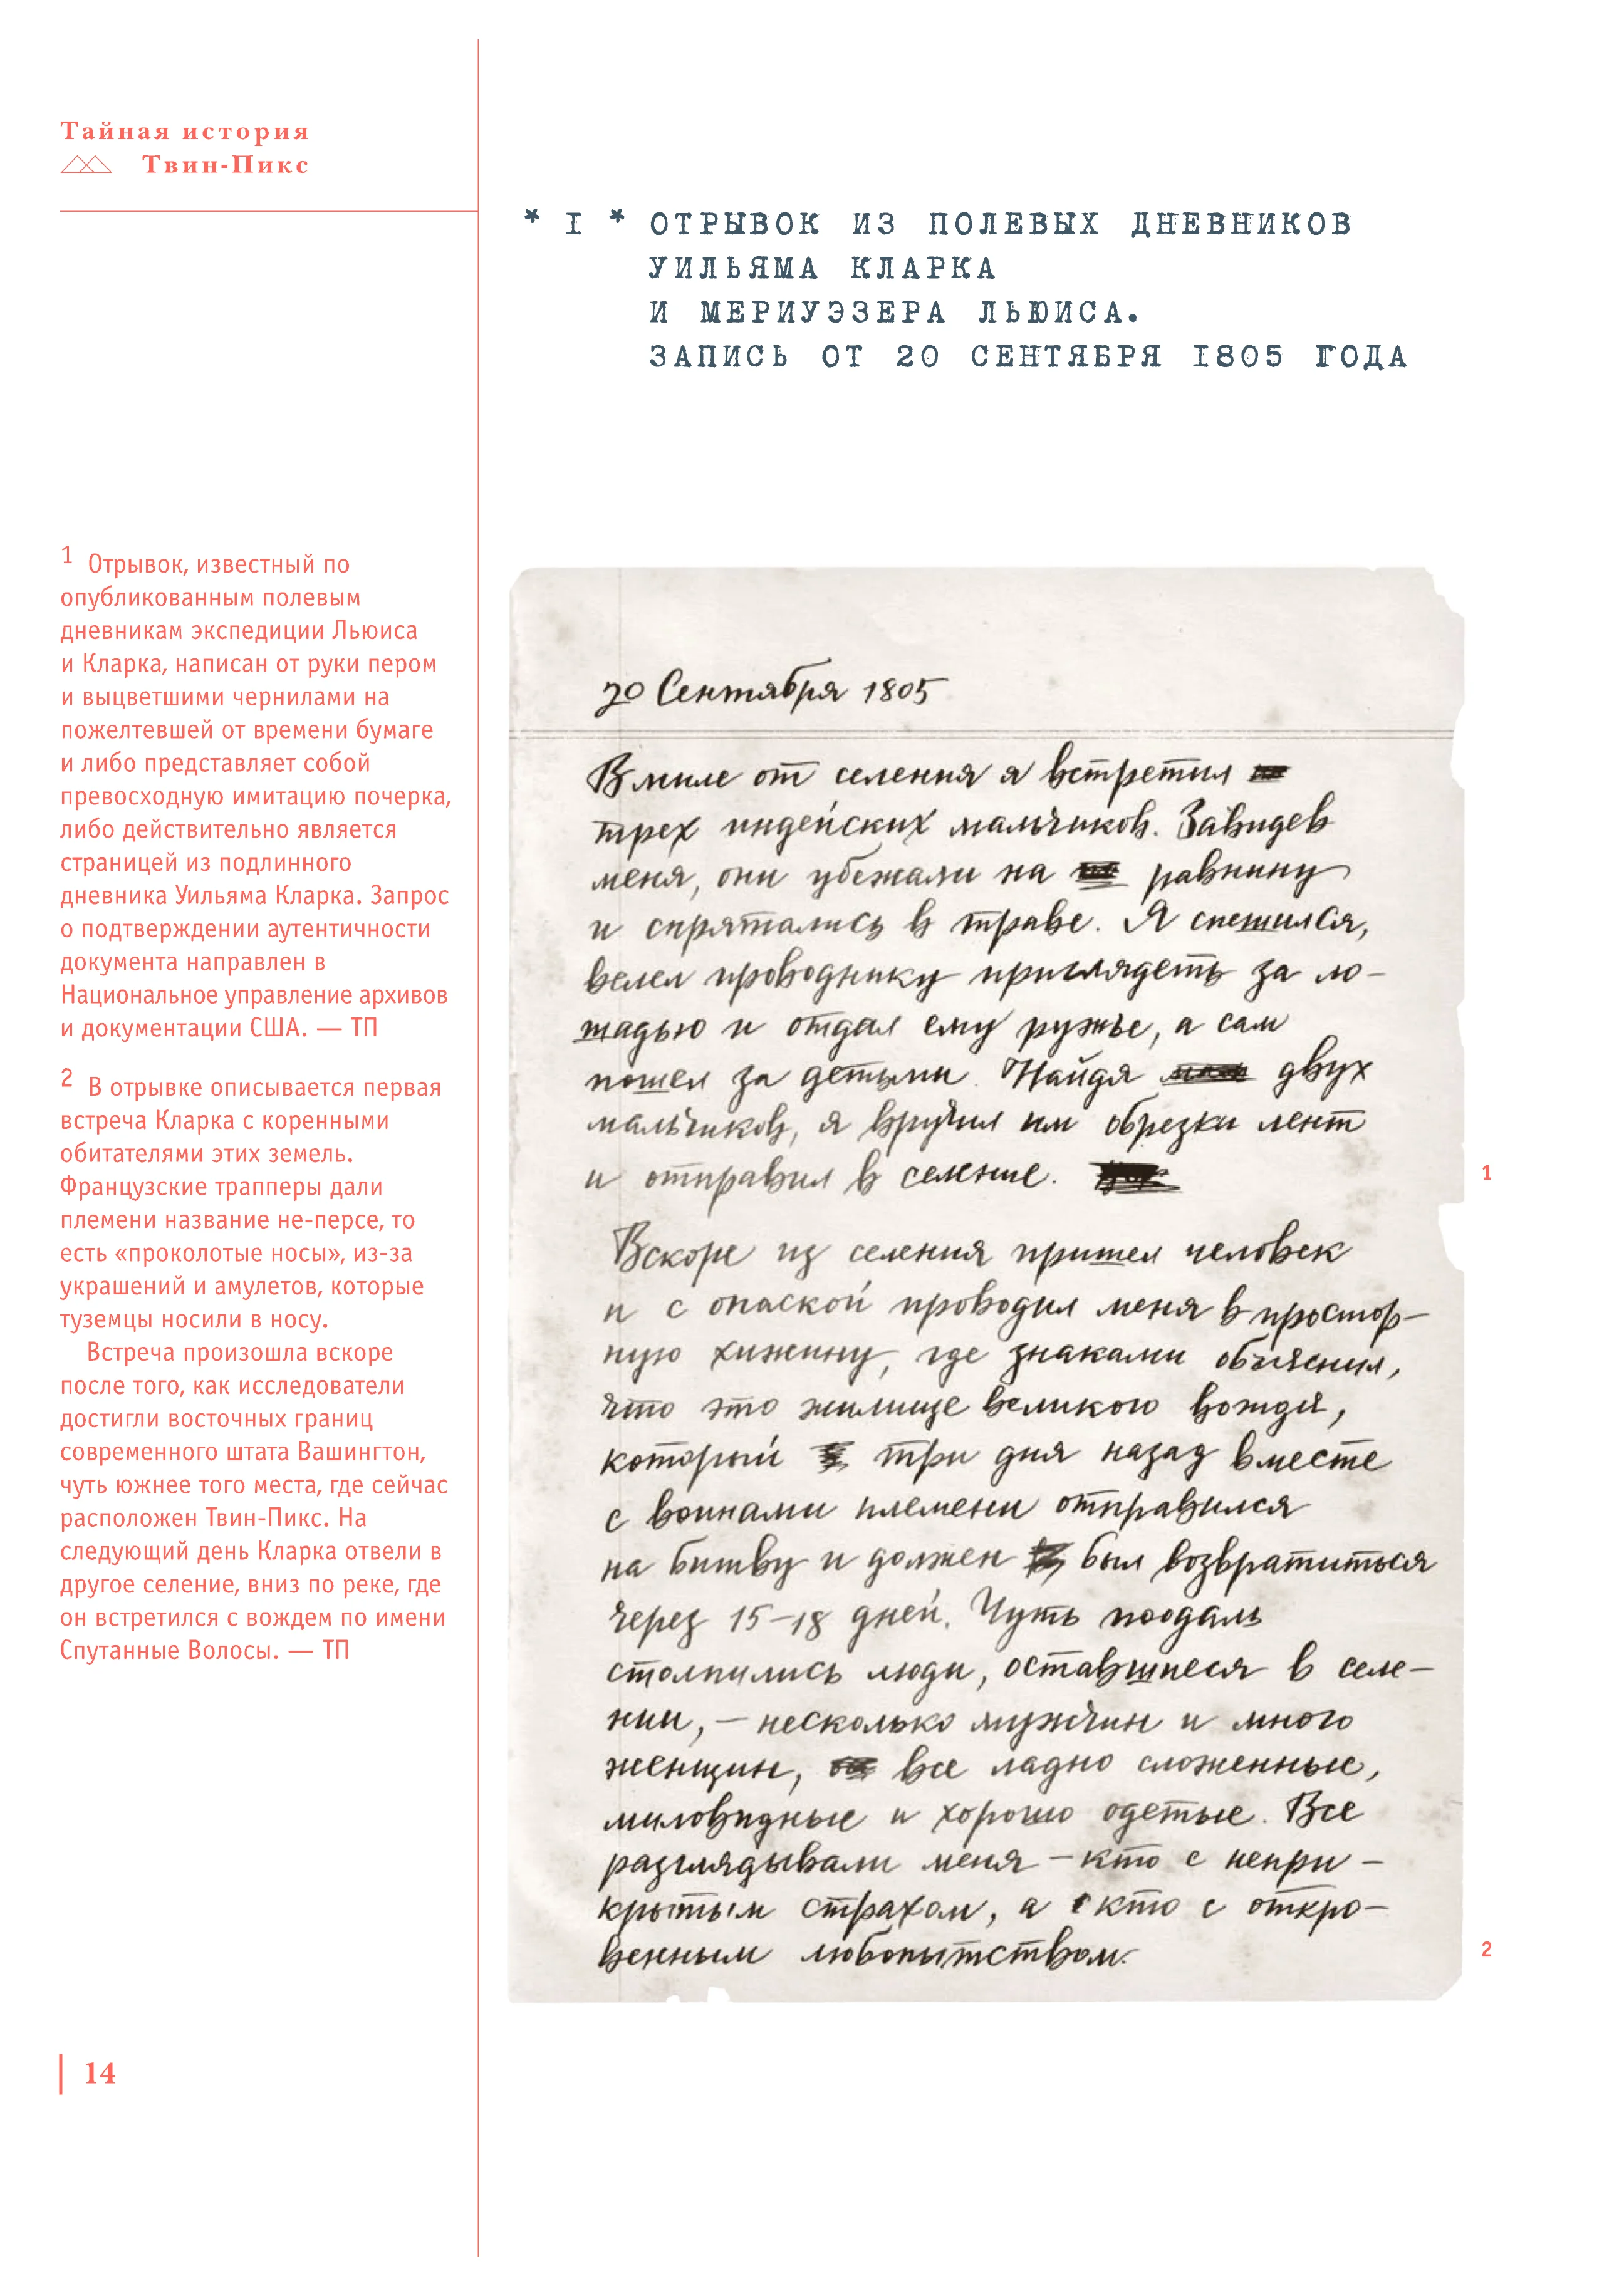 Тайная история
Твин-Пикс
* I * ОТРЫВОК ИЗ ПОЛЕВЫХ ДНЕВНИКОВ
УИЛЬЯМА КЛАРКА
И МЕРИУЭЗЕРА ЛЬЮИСА.
ЗАПИСЬ ОТ 20 СЕНТЯБРЯ I805 ГОДА
1 Отрывок, известный по
опубликованным полевым
дневникам экспедиции Льюиса
и Кларка, написан от руки пером
и выцветшими чернилами на
пожелтевшей от времени бумаге
и либо представляет собой
превосходную имитацию почерка,
либо действительно является
страницей из подлинного
дневника Уильяма Кларка. Запрос
о подтверждении аутентичности
документа направлен в
Национальное управление архивов
и документации США. — ТП
2 В отрывке описывается первая
встреча Кларка с коренными
обитателями этих земель.
Французские трапперы дали
племени название не-персе, то
есть «проколотые носы», из-за
украшений и амулетов, которые
туземцы носили в носу.
Встреча произошла вскоре
после того, как исследователи
достигли восточных границ
современного штата Вашингтон,
чуть южнее того места, где сейчас
расположен Твин-Пикс. На
следующий день Кларка отвели в
другое селение, вниз по реке, где
он встретился с вождем по имени
Спутанные Волосы. — ТП
20 Сентября 1805
В миле от селения я встретил
трех индейских мальчиков. Завидев
меня, они убежали на равнину
и спрятались в траве. Я спешился,
велел проводнику приглядеть за ло-
шадью и отдал ему ружье, а сам
пошел за детьми. Найдя двух
мальчиков, я вручил им обрезки лент
и отправил в селение.
1
Вскоре из селения пришел человек
и с опаской проводил меня в простор-
ную хижину, где знаками объяснил,
что это жилище великого вождя,
который три дня назад вместе
с воинами племени отправился
на битву и должен был возвратиться
через 15-18 дней. Чуть поодаль
столпились люди, оставшиеся в селе-
нии, — несколько мужчин и много
женщин, все ладно сложенные,
миловидные и хорошо одетые. Все
разглядывали меня — кто с непри-
крытым страхом, а кто с откро-
венным любопытством.
2
14